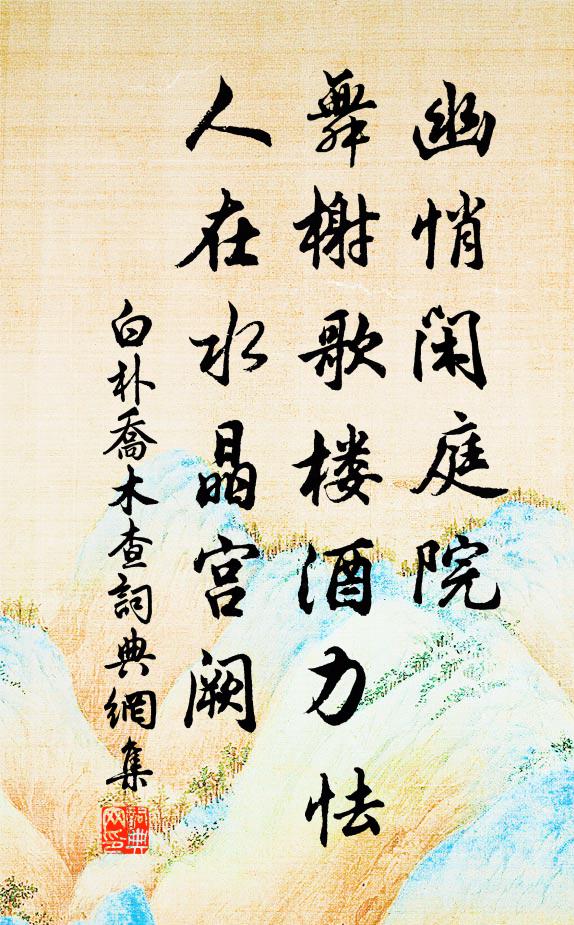 幽悄闲庭院
舞榭歌楼酒力怯
人在水晶宫阙
白朴喬木查詞典網集
詞典